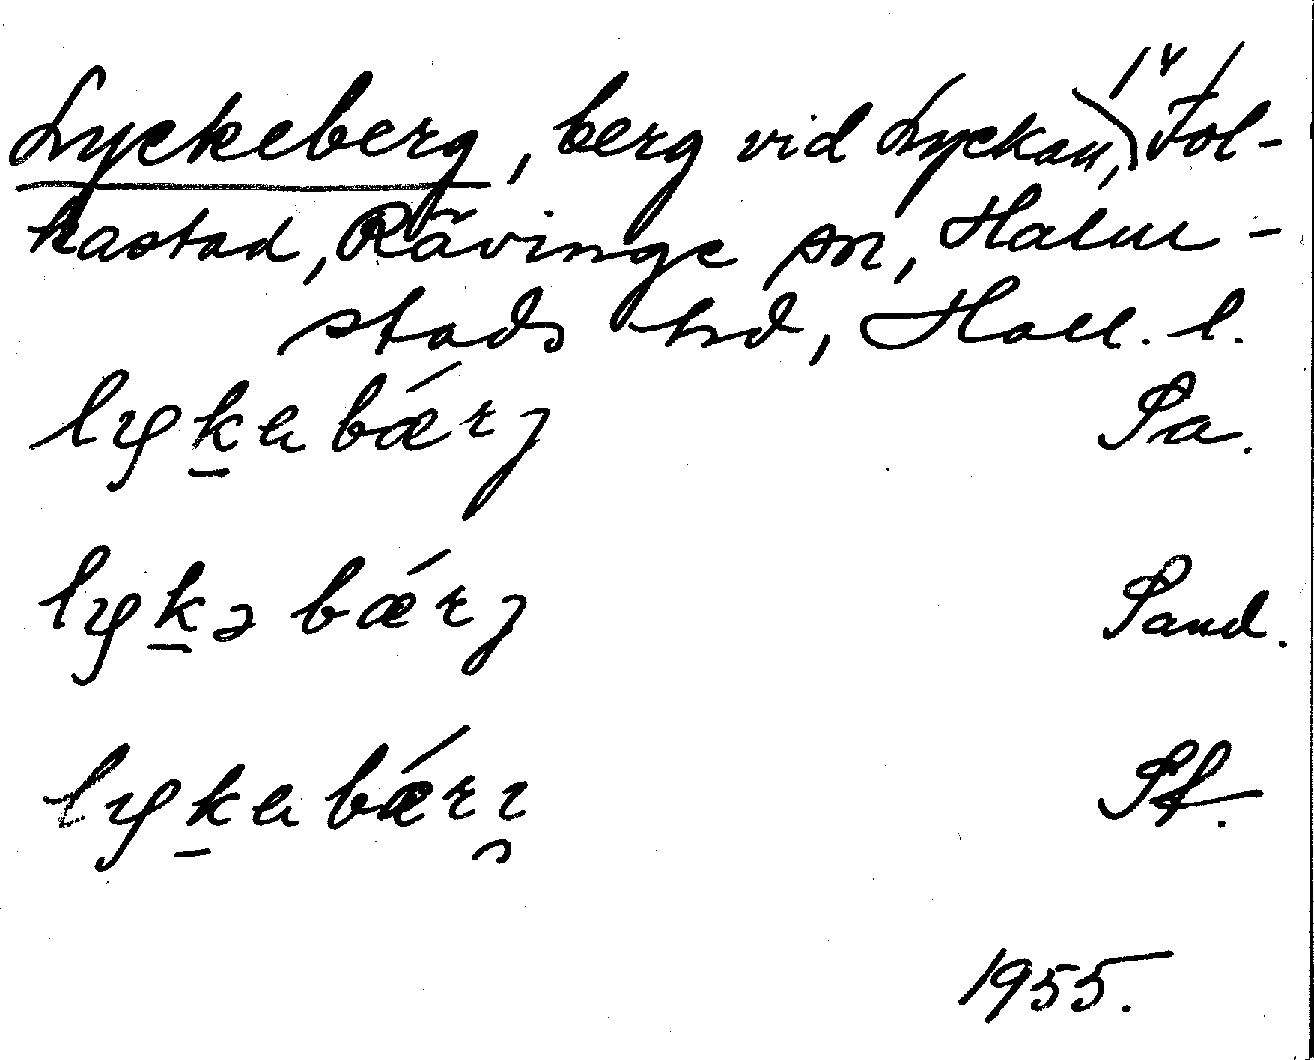 Lyckeberg, berg vid Lyckan, 1⁴ Fol-
kastad, Rävinge sn, Halm-
stads hd, Hall. l.
lyka bǽrj Pa.
lykə bǽrj Pand.
lyka bǽrı̯ Pf.
1955.